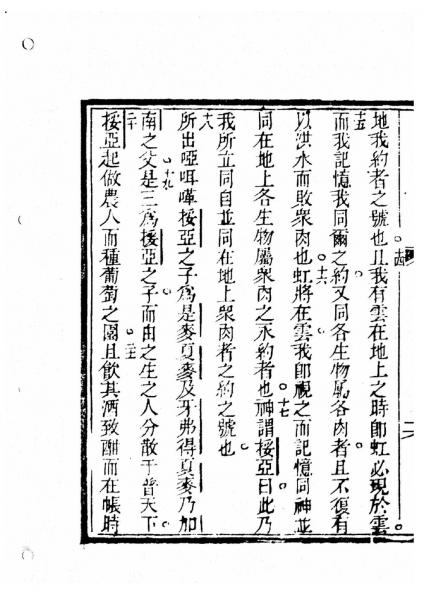 地我約者之號也十四且我有雲在地上之時即虹必現於雲
十五而我記憶我同爾之約又同各生物屬各肉者且不復有
以洪水而敗衆肉也十六虹將在雲我即視之而記憶同神並
同在地上各生物屬衆肉之永約者也十七神謂挼亞曰此乃
我所立同自並同在地上衆肉者之約之號也
十八所出啞咡嗶挼亞之子爲是麥夏麥及牙弗得夏麥乃加
南之父十九是三爲挼亞之子而由之生之人分散于普天下
二十挼亞起做農人而種葡萄之園二一且飲其酒致酣而在帳時